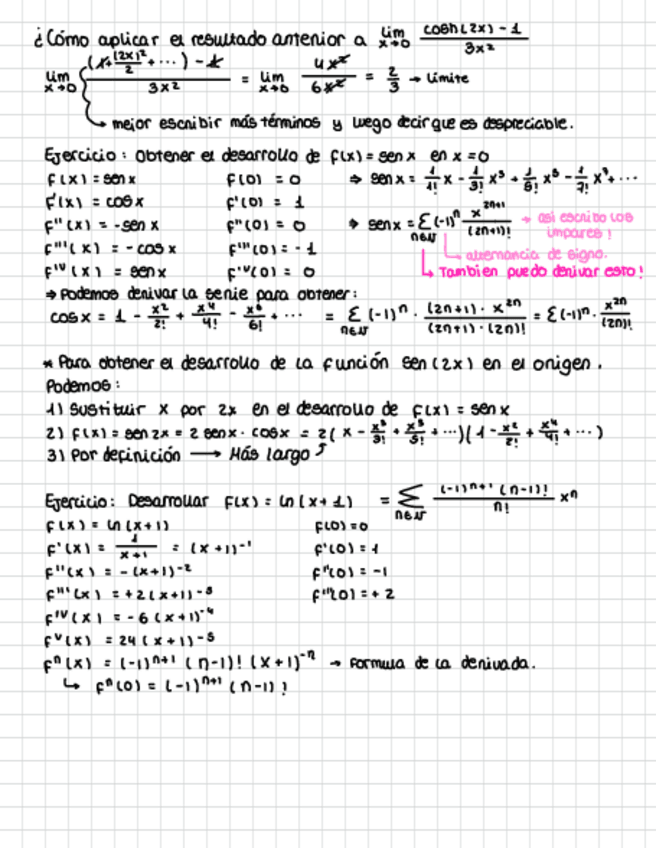 ¿Cómo aplicar el resultado anterior a lim x→0 (cosh(2x) - 1)/(3x²)
lim x→0 ((1 + (2x)²/2 + ···) - 1)/(3x²) = lim x→0 4x²/6x² = 2/3 → Límite
↳ mejor escribir más términos y luego decir que es despreciable.
Ejercicio: Obtener el desarrollo de f(x) = sen x en x = 0
f(x) = sen x f(0) = 0 ⇒ sen x = 1/1! x - 1/3! x³ + 1/5! x⁵ - 1/7! x⁷ + ···
f'(x) = cos x f'(0) = 1
f''(x) = -sen x f''(0) = 0 ⇒ sen x = Σ n∈ℕ (-1)ⁿ x²ⁿ⁺¹/(2n+1)! → así escribo los impares!
f'''(x) = - cos x f'''(0) = -1 ↳ alternancia de signo.
f'ⱽ(x) = sen x f'ⱽ(0) = 0 ↳ También puedo derivar esto!
⇒ Podemos derivar la serie para obtener:
cos x = 1 - x²/2! + x⁴/4! - x⁶/6! + ··· = Σ n∈ℕ (-1)ⁿ · ((2n+1) · x²ⁿ)/((2n+1) · (2n)!) = Σ (-1)ⁿ · x²ⁿ/(2n)!
* Para obtener el desarrollo de la función sen(2x) en el origen.
Podemos:
1) Sustituir x por 2x en el desarrollo de f(x) = sen x
2) f(x) = sen 2x = 2 sen x · cos x = 2(x - x³/3! + x⁵/5! + ···)(1 - x²/2! + x⁴/4! + ···)
3) Por definición → Más largo ⤴
Ejercicio: Desarrollar f(x) = ln(x+1) = Σ n∈ℕ ((-1)ⁿ⁺¹ (n-1)!)/n! xⁿ
f(x) = ln(x+1) f(0) = 0
f'(x) = 1/(x+1) = (x+1)⁻¹ f'(0) = 1
f''(x) = -(x+1)⁻² f''(0) = -1
f'''(x) = +2(x+1)⁻³ f'''(0) = + 2
f'ⱽ(x) = -6(x+1)⁻⁴
fⱽ(x) = 24(x+1)⁻⁵
fⁿ(x) = (-1)ⁿ⁺¹ (n-1)! (x+1)⁻ⁿ → Formula de la derivada.
↳ fⁿ(0) = (-1)ⁿ⁺¹ (n-1)!